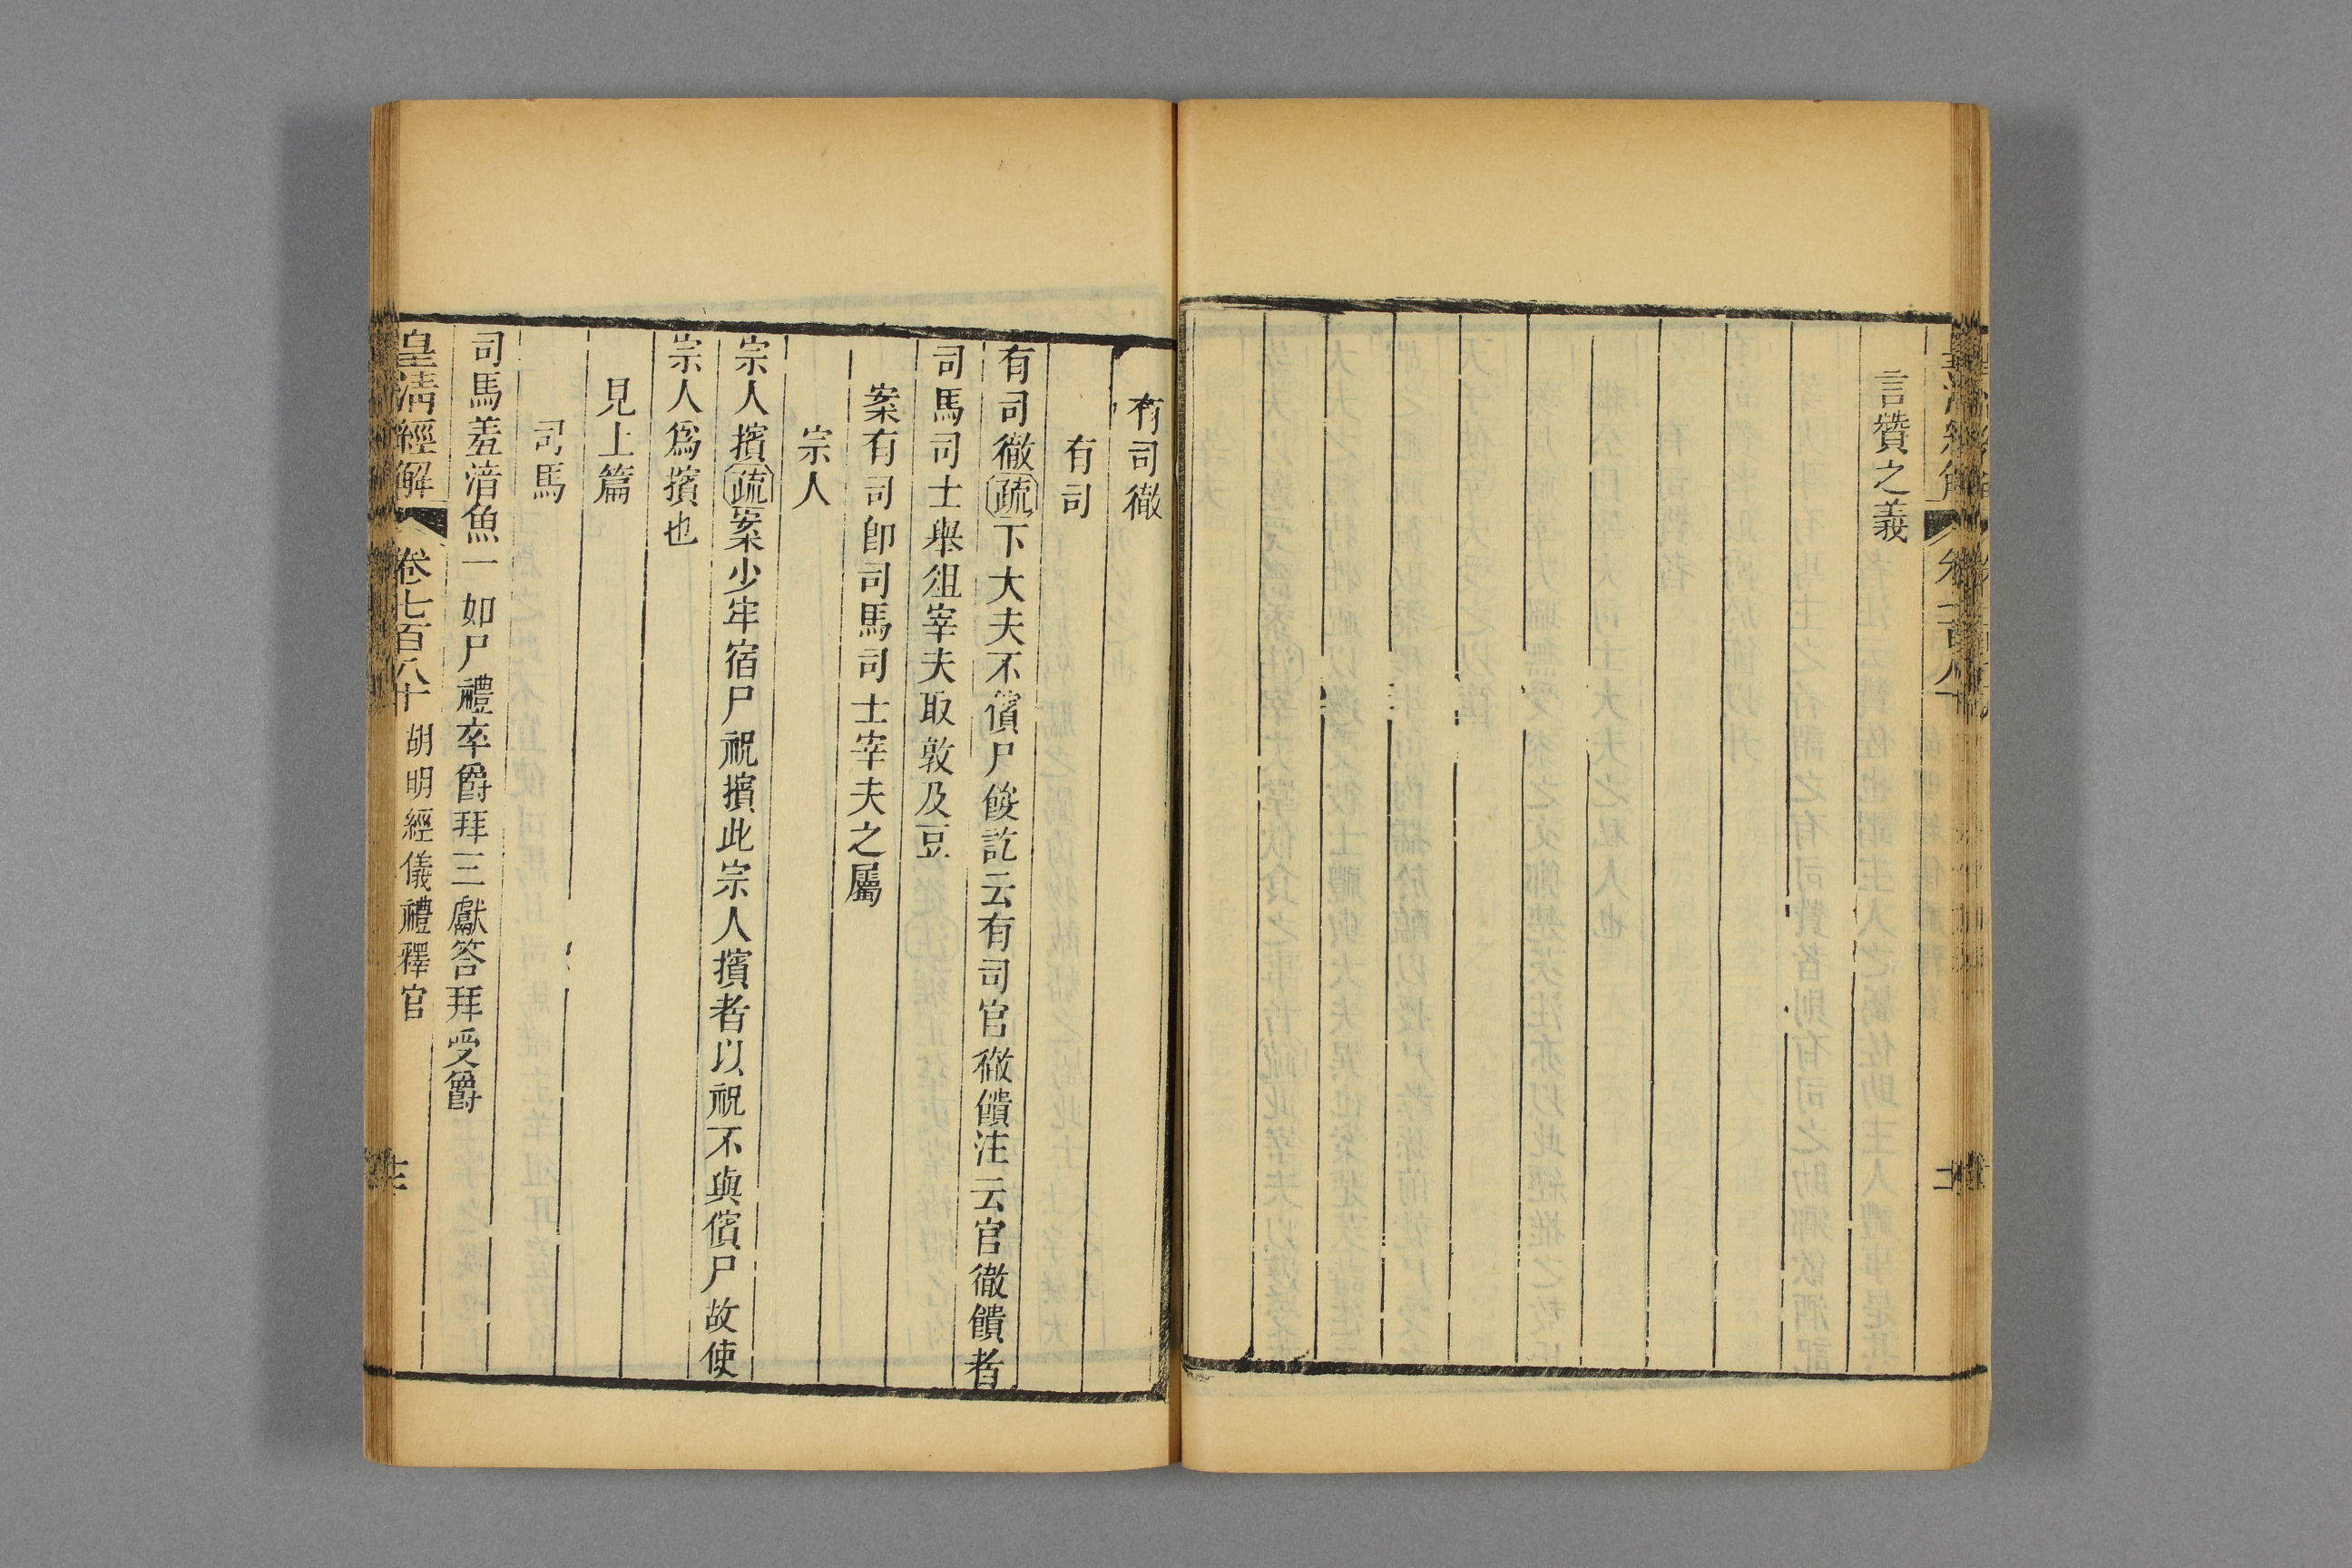 言贊之義
有司徹
有司
有司徹疏下大夫不儐尸餕訖云有司官徹饋注云官徹饋者
司馬司士舉俎宰夫取敦及豆
案有司卽司馬司士宰夫之屬
宗人
宗人擯疏案少牢宿尸祝擯此宗人擯者以祝不與儐尸故使
宗人爲擯也
見上篇
司馬
司馬羞湇魚一如尸禮卒爵拜三獻答拜受爵
皇淸經解 卷七百八十 胡明經儀禮釋官